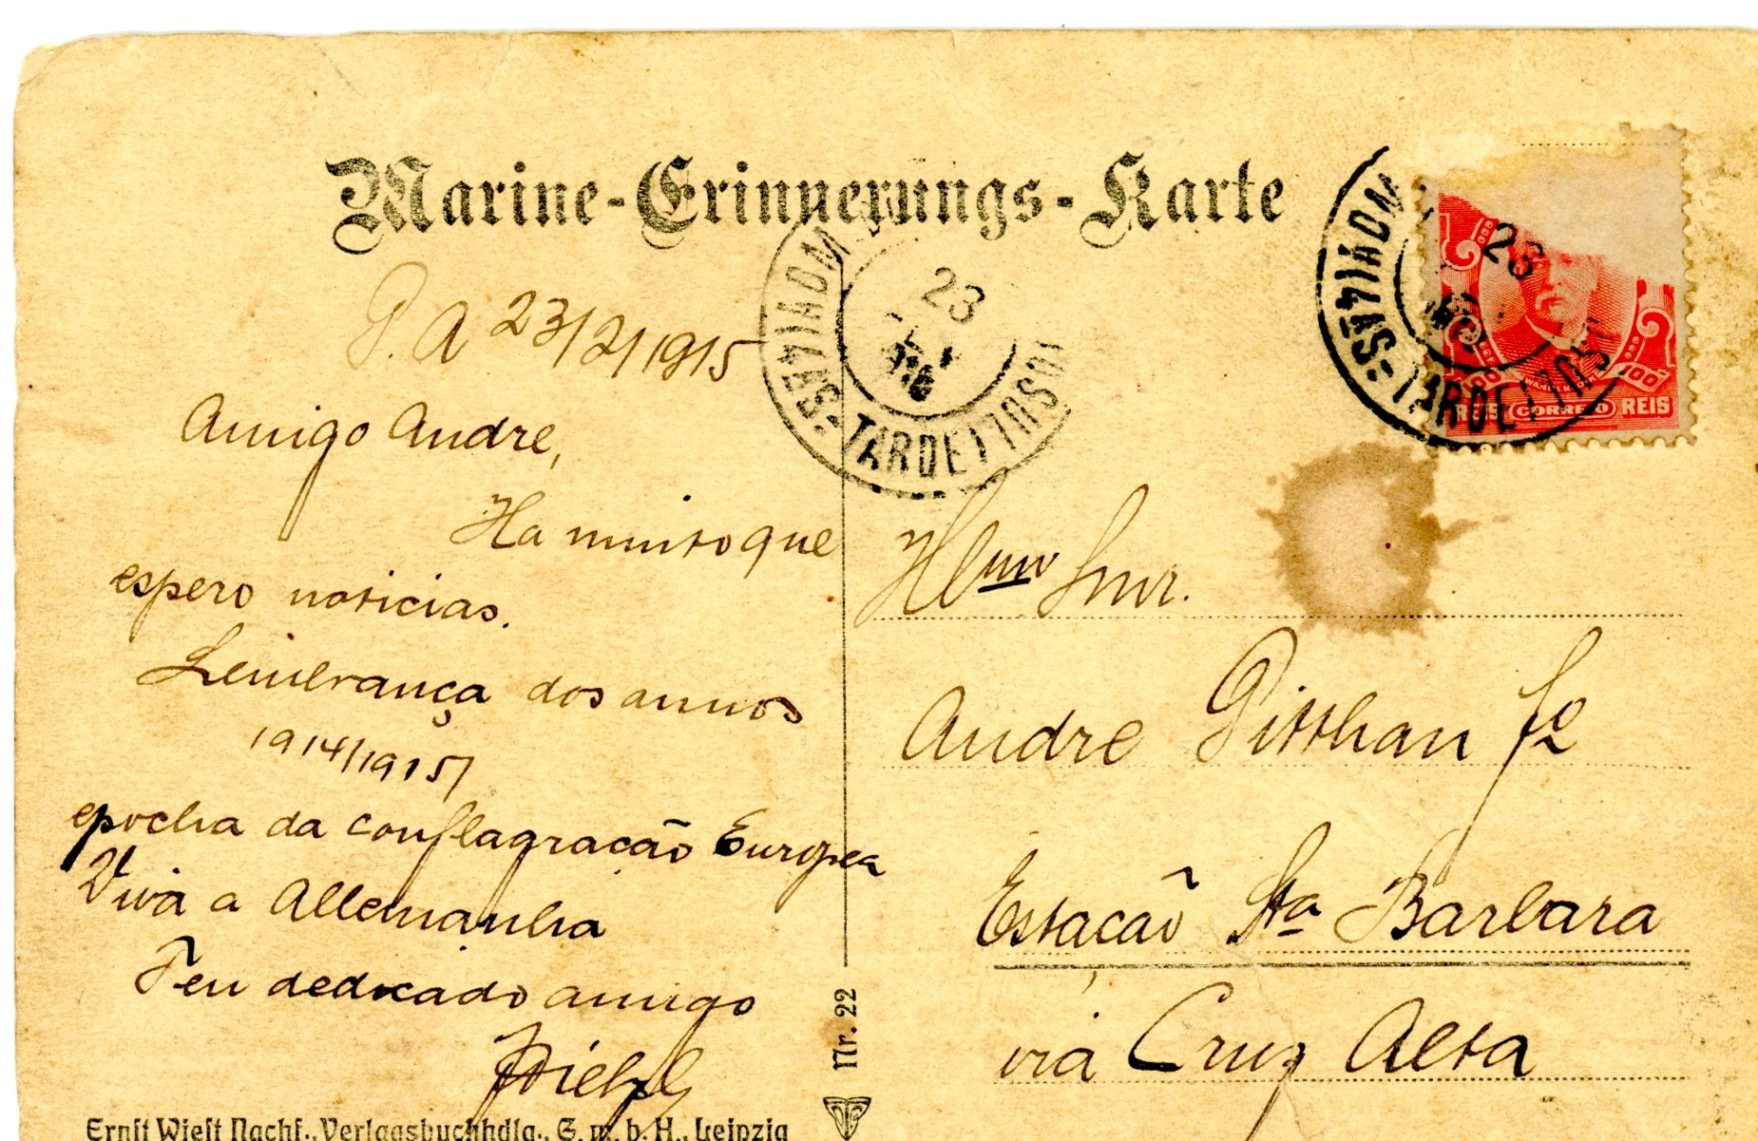 Marine-Erinnerungs-Karte
P. A 23/2/1915
Amigo Andre,
Ha muito que
espero noticias.
Lembrança dos annos
1914/1915
epocha da conflagração Europea
Viva a Allemanha
Teu dedicado amigo
Ernst Wiest Nachf., Verlagsbuchhdlg., G. m. b. H., Leipzig
Nr. 22
23
TARDE
23
TARDE
100 100
REIS CORREIO REIS
Illmo Snr.
Andre Pitthan Fo
Estação Sta Barbara
via Cruz Alta